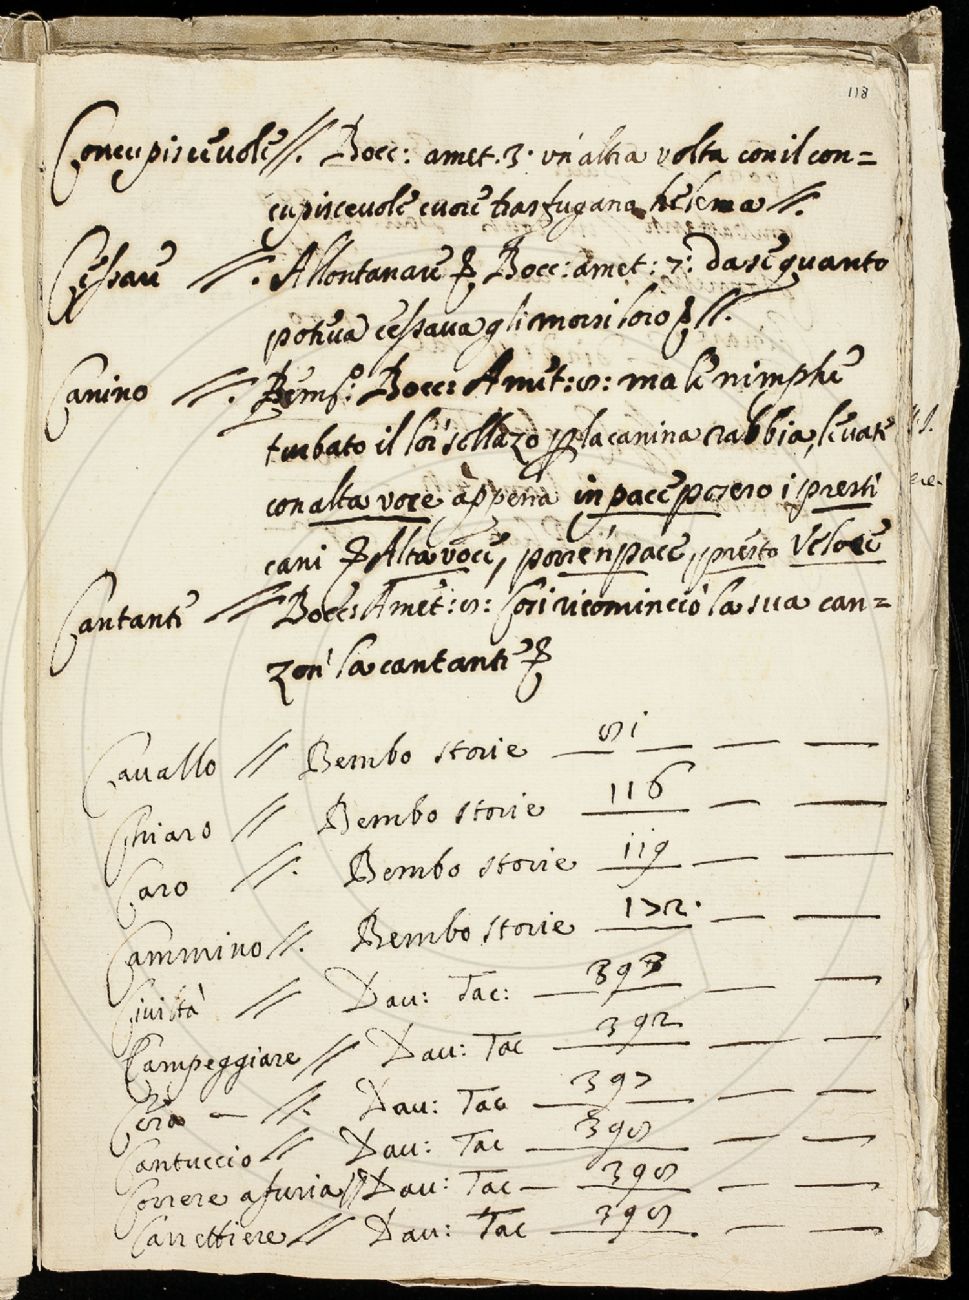 118
Concupisceuole //. Bocc: amet. 3. un'altra volta con il con=
cupisceuole cuore trasfugana helena //.
Cessare //. Allontanare Bocc: amet: 7: da se quanto
poteua cessaua gli morsi loro //.
Canino //. Bocc: Amet: 8: ma le nimphe
turbato il lor sollazo p la canina rabbia, leuate
con alta voce appena in pace posero i presti
cani Alta voce, porre in pace, presto Veloce
Cantante // Bocc: Amet: 8: cosi ricominciò la sua can=
zon' la cantante
Cauallo // Bembo storie 81
Chiaro // Bembo storie 116
Caro //. Bembo storie 119
Cammino //. Bembo storie 172.
Ciuiltà // Dau: Tac: 393
Campeggiare // Dau: Tac 392
Cera — //. Dau: Tac 397
Cantuccio // Dau: Tac 398
Correre a furia // Dau: Tac — 398
Carrettiere // Dau: Tac 398